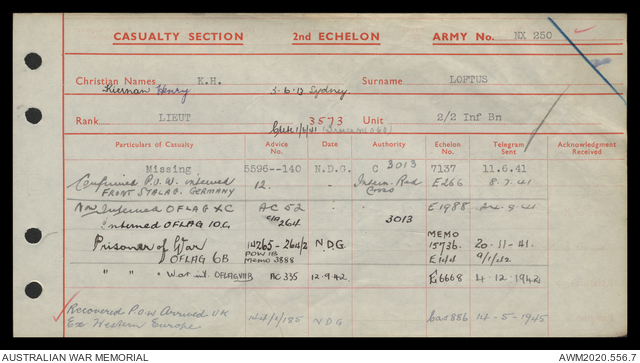 CASUALTY SECTION 2nd ECHELON ARMY No. NX 250
Christian Names K.H. Surname LOFTUS
Kiernan Henry 3-6-17 Sydney
Rank LIEUT 3573 Unit 2/2 Inf Bn
Particulars of Casualty Advice No. Date Authority Echelon No. Telegram Sent Acknowledgment Received
Missing 5596--140 N.D.G. C 3013 7137 11.6.41
Confirmed P.O.W. interned 12. Intern. Red E266 8.7.41
FRONT STALAG. GERMANY Cross
Now Interned OFLAG XC AC 52 E1988
Interned OFLAG 10C 264 3013
MEMO
Prisoner of War 265-264/2 N.D.G. 15736. 20-11-41.
OFLAG 6B POW 11B
Memo 3888 9/1/42
" " " OFLAG VIIB AC 335 12.9.42. E6668 4.12.1942
Recovered P.O.W Arrived UK N D G Cas886 14-5-1945
Ex Western Europe
AUSTRALIAN WAR MEMORIAL AWM2020.556.7